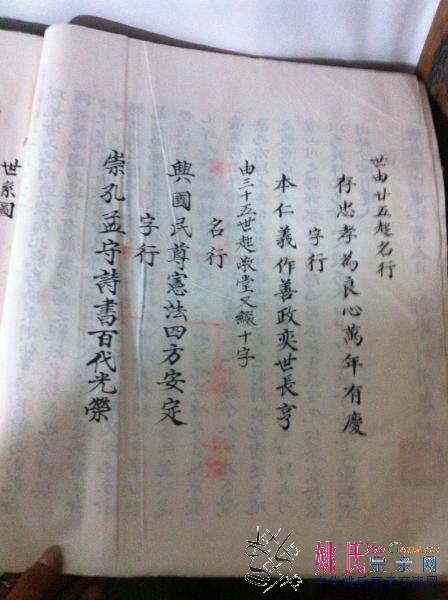 世由廿五起名行
存忠孝為良心萬年有慶
字行
本仁義作善政奕世長亨
由三十五世起敬堂又綴十字
名行
興國民尊憲法四方安定
字行
崇孔孟守詩書百代光榮
世系圖
姚氏宗亲网